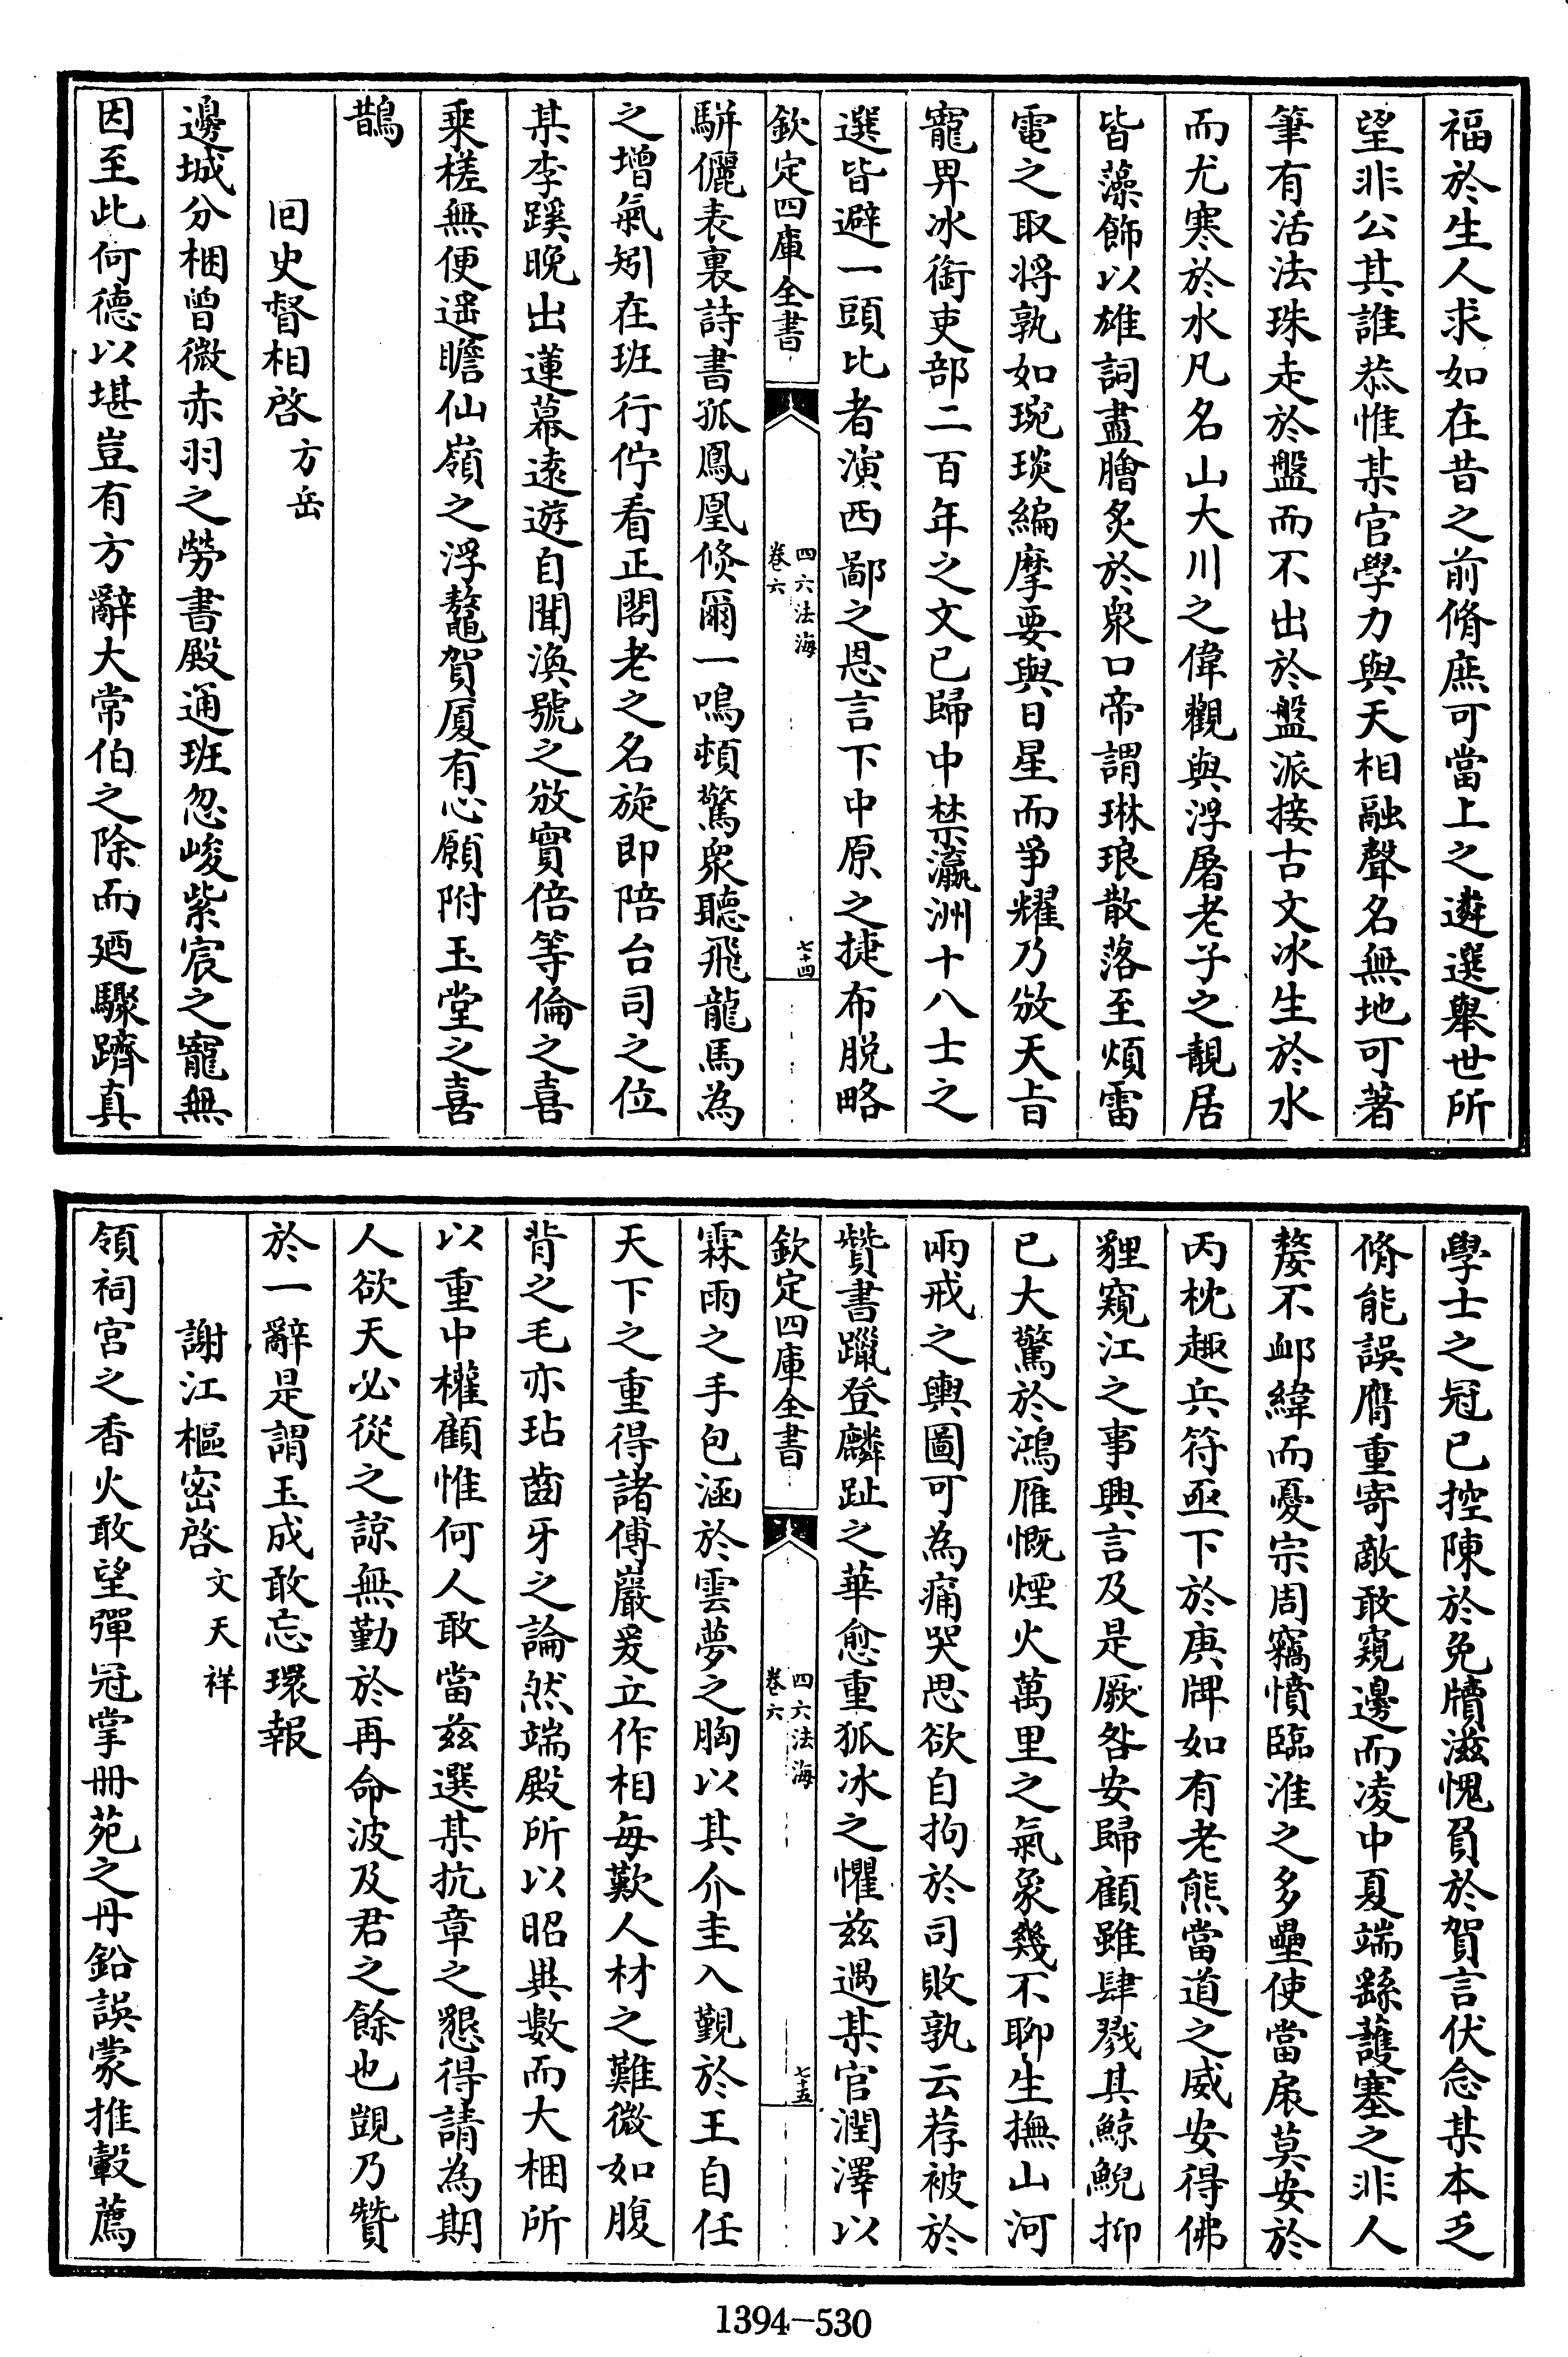 福於生人求如在昔之前脩庶可當上之遴選舉世所
望非公其誰恭惟某官學力與天相融聲名無地可著
筆有活法珠走於盤而不出於盤派接古文冰生於水
而尤寒於水凡名山大川之偉觀與浮屠老子之靚居
皆藻飾以雄詞盡膾炙於衆口帝謂琳琅散落至煩雷
電之取將孰如琬琰編摩要與日星而爭耀乃攽天㫖
寵畀冰銜吏部二百年之文已歸中禁瀛洲十八士之
選皆避一頭比者演西鄙之恩言下中原之捷布脱略
欽定四庫全書
四六法海
卷六
七十四
駢儷表裏詩書孤鳳凰倐爾一鳴頓驚衆聽飛龍馬為
之增氣矧在班行佇看正閣老之名旋即陪台司之位
某李蹊晚出蓮幕遠遊自聞渙號之攽實倍等倫之喜
乘槎無便遥瞻仙嶺之浮鼇賀厦有心願附玉堂之喜
鵲
回史督相啓方岳
邊城分梱曾微赤羽之勞書殿通班忽峻紫宸之寵無
因至此何德以堪豈有方辭大常伯之除而廼驟躋真
學士之冠已控陳於免牘滋愧負於賀言伏念某本乏
脩能誤膺重寄敵敢窺邊而凌中夏端繇護塞之非人
嫠不䘏緯而憂宗周竊憤臨淮之多壘使當扆莫安於
丙枕趣兵符亟下於庚牌如有老熊當道之威安得佛
貍窺江之事興言及是厥咎安歸顧雖肆戮其鯨鯢抑
已大驚於鴻雁慨煙火萬里之氣象幾不聊生撫山河
兩戒之輿圖可為痛哭思欲自拘於司敗孰云荐被於
贊書躐登麟趾之華愈重狐冰之懼兹遇某官潤澤以
欽定四庫全書
四六法海
卷六
七十五
霖雨之手包涵於雲夢之胸以其介圭入覲於王自任
天下之重得諸傅巖爰立作相每歎人材之難微如腹
背之毛亦玷齒牙之論然端殿所以昭異數而大梱所
以重中權顧惟何人敢當兹選某抗章之懇得請為期
人欲天必從之諒無勤於再命波及君之餘也覬乃贊
於一辭是謂玉成敢忘環報
謝江樞密啓文天祥
領祠宮之香火敢望彈冠掌冊苑之丹鉛誤蒙推轂薦
1394-530